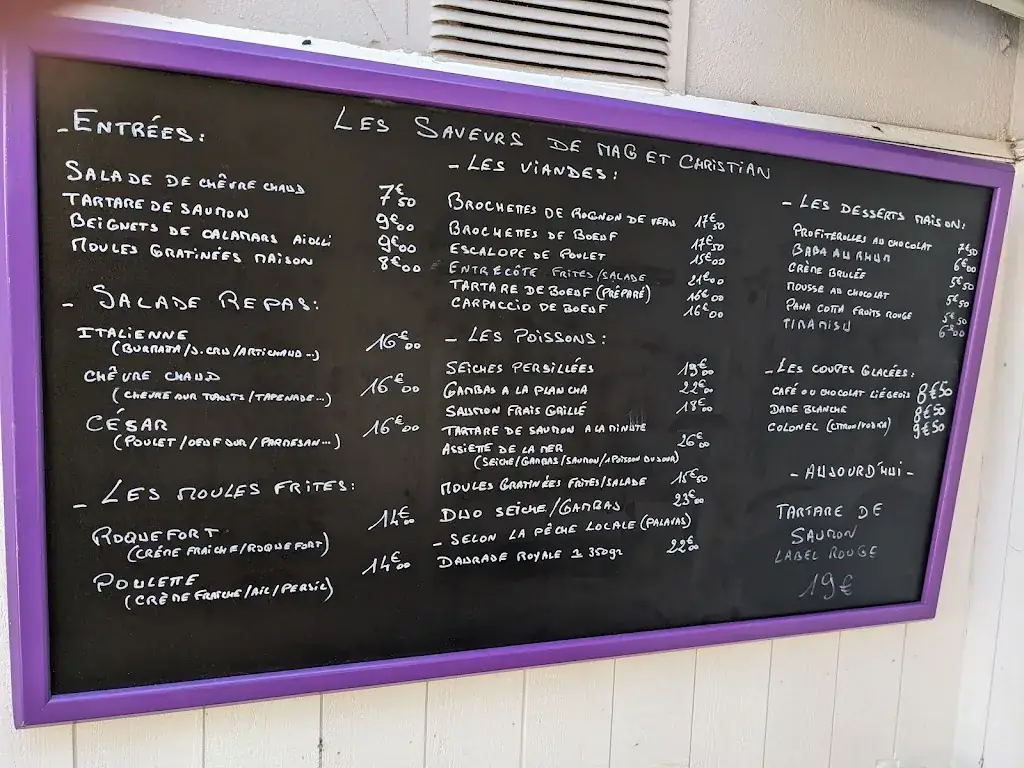 LES SAVEURS DE MAG ET CHRISTIAN
- ENTRÉES:
SALADE DE CHÈVRE CHAUD 7€50
TARTARE DE SAUMON 9€00
BEIGNETS DE CALAMARS AIOLLI 9€00
MOULES GRATINÉES MAISON 8€00
- SALADE REPAS:
ITALIENNE 16€00
(BURRATA/J.CRU/ARTICHAUD...)
CHÈVRE CHAUD 16€00
(CHEVRE SUR TOASTS/TAPENADE...)
CÉSAR 16€00
(POULET/OEUF DUR/PARMESAN...)
- LES MOULES FRITES:
ROQUEFORT 14€00
(CRÈME FRAICHE/ROQUEFORT)
POULETTE 14€00
(CRÈME FRAICHE/AIL/PERSIL)
- LES VIANDES:
BROCHETTES DE ROGNON DE VEAU 17€50
BROCHETTES DE BOEUF 17€50
ESCALOPE DE POULET 15€00
ENTRECÔTE FRITES/SALADE 21€00
TARTARE DE BOEUF (PRÉPARÉ) 16€00
CARPACCIO DE BOEUF 16€00
- LES POISSONS:
SEICHES PERSILLÉES 19€00
GAMBAS A LA PLANCHA 22€00
SAUMON FRAIS GRILLÉ 18€00
TARTARE DE SAUMON A LA MINUTE
ASSIETTE DE LA MER 26€00
(SEICHE/GAMBAS/SAUMON/1 POISSON DU JOUR)
MOULES GRATINÉES FRITES/SALADE 15€50
DUO SEICHE/GAMBAS 23€00
- SELON LA PÊCHE LOCALE (PALAVAS)
DAURADE ROYALE ± 350gr 22€00
- LES DESSERTS MAISON:
PROFITEROLLES AU CHOCOLAT 7€50
BABA AU RHUM 6€00
CRÈME BRULÉE 5€50
MOUSSE AU CHOCOLAT 5€50
PANA COTTA FRUITS ROUGE 5€50
TIRAMISU 6€00
- LES COUPES GLACÉES:
CAFÉ OU CHOCOLAT LIÉGEOIS 8€50
DAME BLANCHE 8€50
COLONEL (CITRON/VODKA) 9€50
- AUJOURD'HUI -
TARTARE DE
SAUMON
LABEL ROUGE
19€